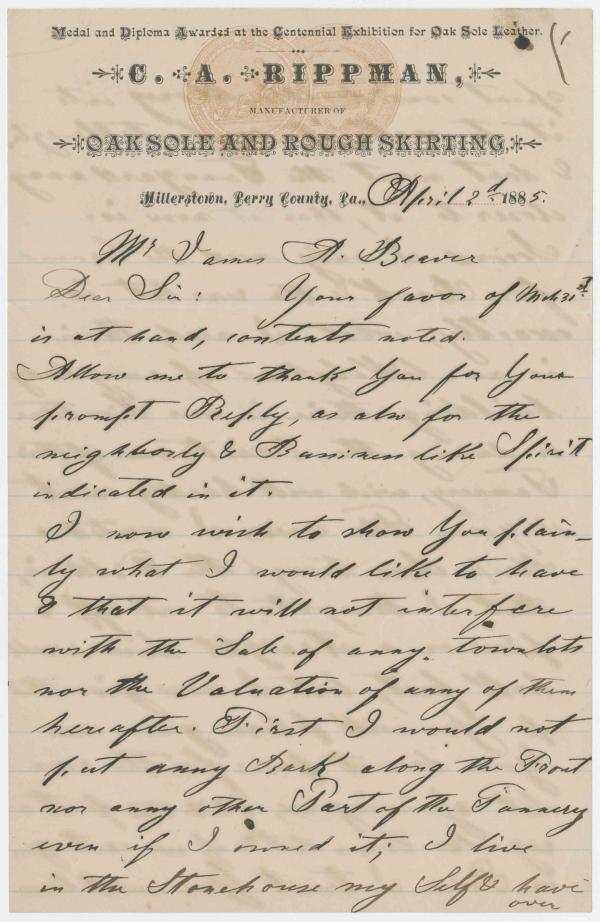 Medal and Diploma Awarded at the Centennial Exhibition for Oak Sole Leather.
C. A. RIPPMAN,
MANUFACTURER OF
OAK SOLE AND ROUGH SKIRTING,
Millerstown, Perry County, Pa., April 2d 1885.
Mr James A. Beaver
Dear Sir: Your favor of Mch 31st
is at hand, contents noted.
Allow me to thank You for Your
prompt Reply, as also for the
neighborly & Bussiness like Spirit
indicated in it.
I now wish to show You plain-
ly what I would like to have
& that it will not interfere
with the Sale of anny townlots
nor the Valuation of anny of them
hereafter. First I would not
put anny Bark along the Front
nor anny other Part of the Tannery
even if I owned it; I live
in the Stonehouse my Self & have
over